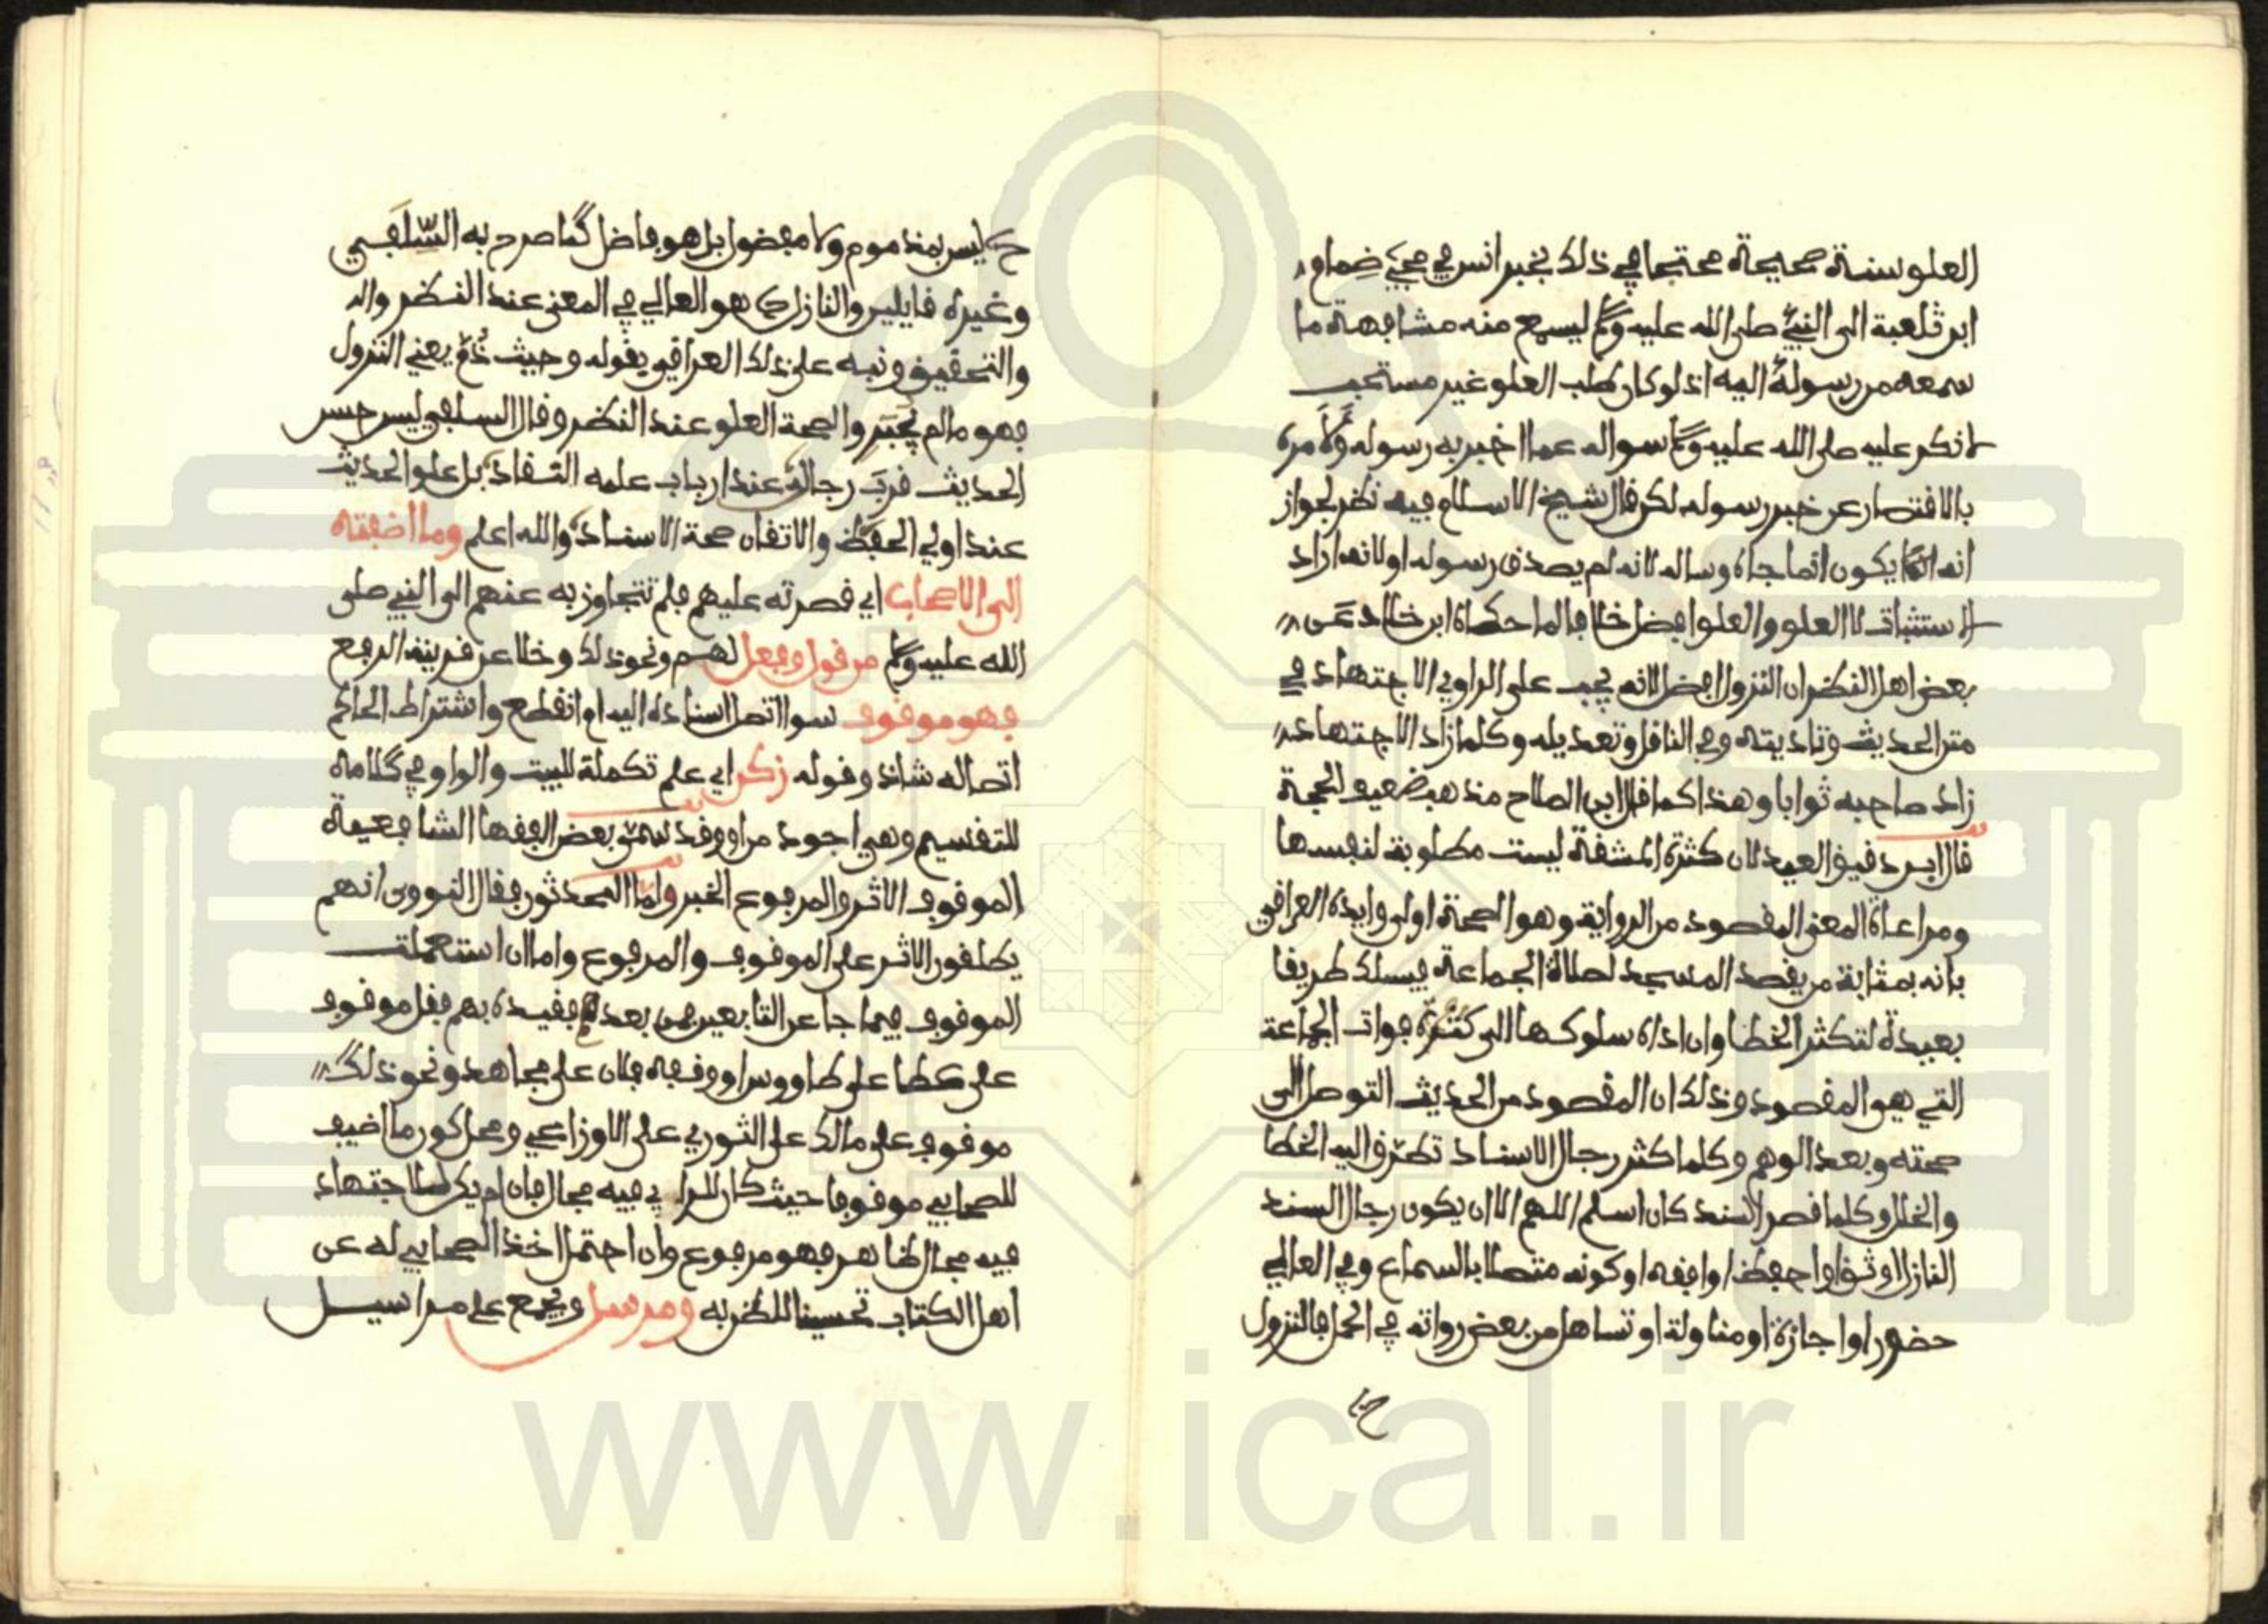 العلو سنة صحيحة محتجا في ذلك بخبر انس في مجيء ضمام
ابن ثلعبة الى النبي صلى الله عليه وسلم ليسمع منه مشافهة ما
سمعه من رسوله اليه اذ لو كان طلب العلو غير مستحب
لانكر عليه صلى الله عليه وسلم سواله عما اخبر به رسوله ولامره
بالاقتصار عن خبر رسوله لكن قال شيخ الاسلام فيه نظر لجواز
انه انما يكون انما جاه وساله لانه لم يصدق رسوله او لانه اراد
الاستثبات لا العلو والعلو افضل خلافا لما حكاه ابن خلاد عن
بعض اهل النظر ان النزول افضل لانه يجب على الراوي الاجتهاد في
متن الحديث وتاديته وفي الناقل وتعديله وكلما زاد الاجتهاد
زاد صاحبه ثوابا وهذا كما قال ابن الصلاح مذهب ضعيف الحجة
قال ابن دقيق العيد لان كثرة المشقة ليست مطلوبة لنفسها
ومراعاة المعنى المقصود من الرواية وهو الصحة اولى وايده العراقي
بانه بمثابة من يقصد المسجد لصلاة الجماعة فيسلك طريقا
بعيدة لتكثر الخطا وان اداه سلوكها الى كثرة فوات الجماعة
التي هي المقصود وذلك ان المقصود من الحديث التوصل الى
صحته وبعد الوهم وكلما كثر رجال الاسناد تطرق اليه الخطا
والخلل وكلما قصر السند كان اسلم اللهم الا ان يكون رجال السند
النازل اوثق او احفظ او افقه او كونه متصلا بالسماع وفي العالي
حضور او اجازة او مناولة او تساهل من بعض رواته في الحمل فالنزول
ح
ح ليس بمذموم ولا مفضول بل هو فاضل كما صرح به السلفي
وغيره قايلين والنازل ح هو العالي في المعنى عند النظر وال
والتحقيق ونبه على ذلك العراقي بقوله وحيث ذم يعني النزول
فهو مالم يجبر والصحة العلو عند النظر وقال السلفي ليس حسن
الحديث قرب رجال عند ارباب علمه النقاد بل علو الحديث
عند اولي الحفظ والاتقان صحة الاسناد والله اعلم وما اضفته
الى الاصحاب اي قصرته عليهم فلم تتجاوز به عنهم الى النبي صلى
الله عليه وسلم من قول وفعل لهم ونحو ذلك وخلا عن قرينة الرفع
فهو موقوف سوا اتصل اسناده اليه ام انقطع واشتراط الحاكم
اتصاله شاذ وقوله زكن اي علم تكملة للبيت والواو في كلامه
للتقسيم وهي اجود من او وقد سمى بعض الفقها الشافعية
الموقوف الاثر والمرفوع الخبر واما المحدثون فقال النووي انهم
يطلقون الاثر على الموقوف والمرفوع واما ان استعملت
الموقوف فيما جا عن التابعين فمن بعد فقيده بهم فقل موقوف
على عطا على طاووس او وقفه فلان على مجاهد ونحو ذلك
موقوف على مالك على الثوري على الاوزاعي ومحل كون ما اضيف
للصحابي موقوفا حيث كان للراي فيه مجال فان لم يكن للاجتهاد
فيه مجال ظاهر فهو مرفوع وان احتمل اخذ الصحابي له عن
اهل الكتاب تحسينا للظن به ومرسل ويجمع على مراسيل
www.ical.ir